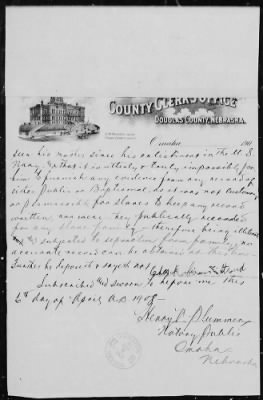 COUNTY CLERK'S OFFICE
DOUGLAS COUNTY, NEBRASKA.
Omaha, 190
seen his master since his enlistment in the U.S.
Navy, & that it is utterly & truly impossible for
him to furnish any evidence from any record of
either Public or Baptismal, as it was not customary
or permissible for slaves to keep any record
written, nor were they publically recorded
for any slave family – therefore being illiterate
and subjected to separation from family, no
accurate record can be obtained at this time
Further he deposes & sayeth not
Subscribed and sworn to before me this
6th day of April A.D. 1908
Henry V. Plummer
Notary Public
Omaha
Nebraska